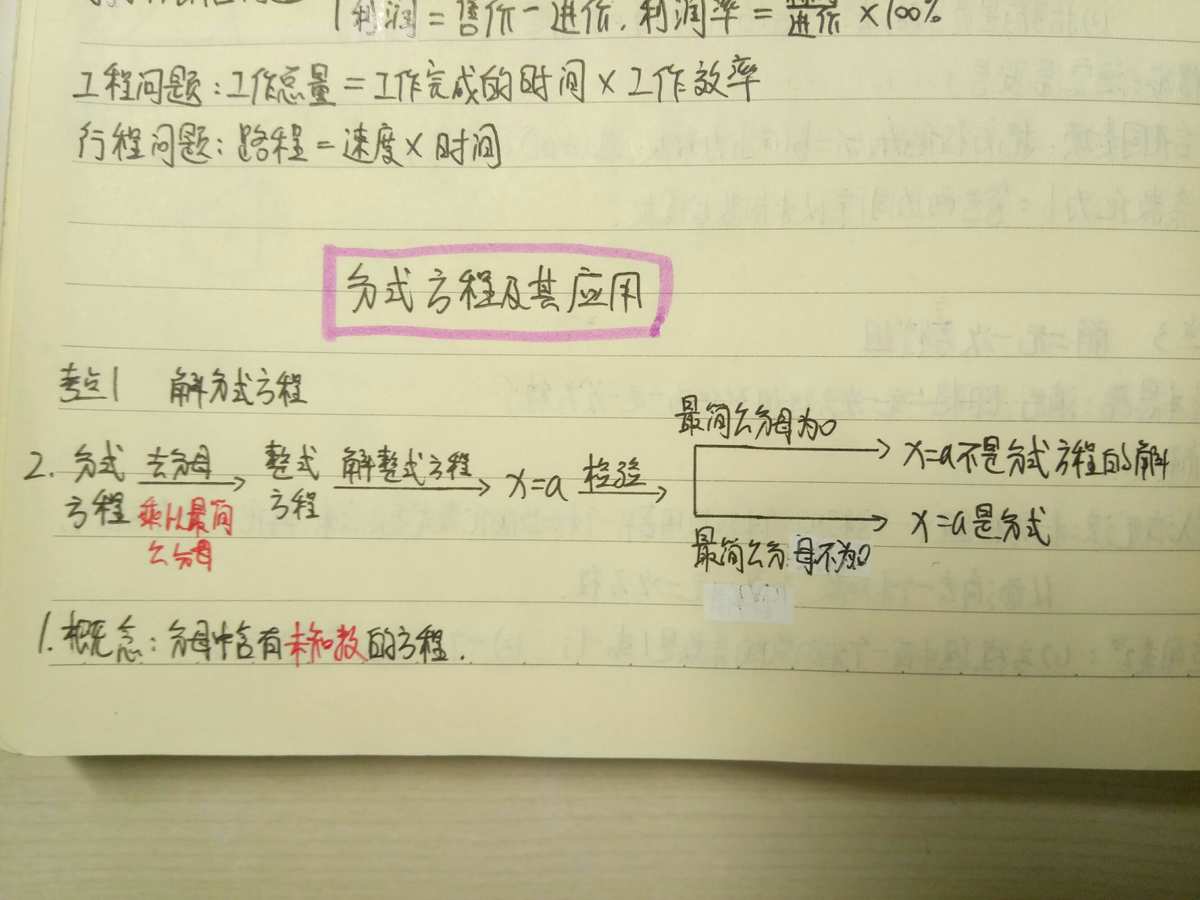 利润=售价-进价,利润率=利润/进价×100%
工程问题:工作总量=工作完成的时间×工作效率
行程问题:路程=速度×时间
分式方程及其应用
考点1 解分式方程
最简公分母为0
2. 分式 去分母 整式 解整式方程 x=a 检验 x=a不是分式方程的解
方程 乘以最简 方程 x=a是分式
公分母 最简公分母不为0
1.概念:分母中含有未知数的方程.